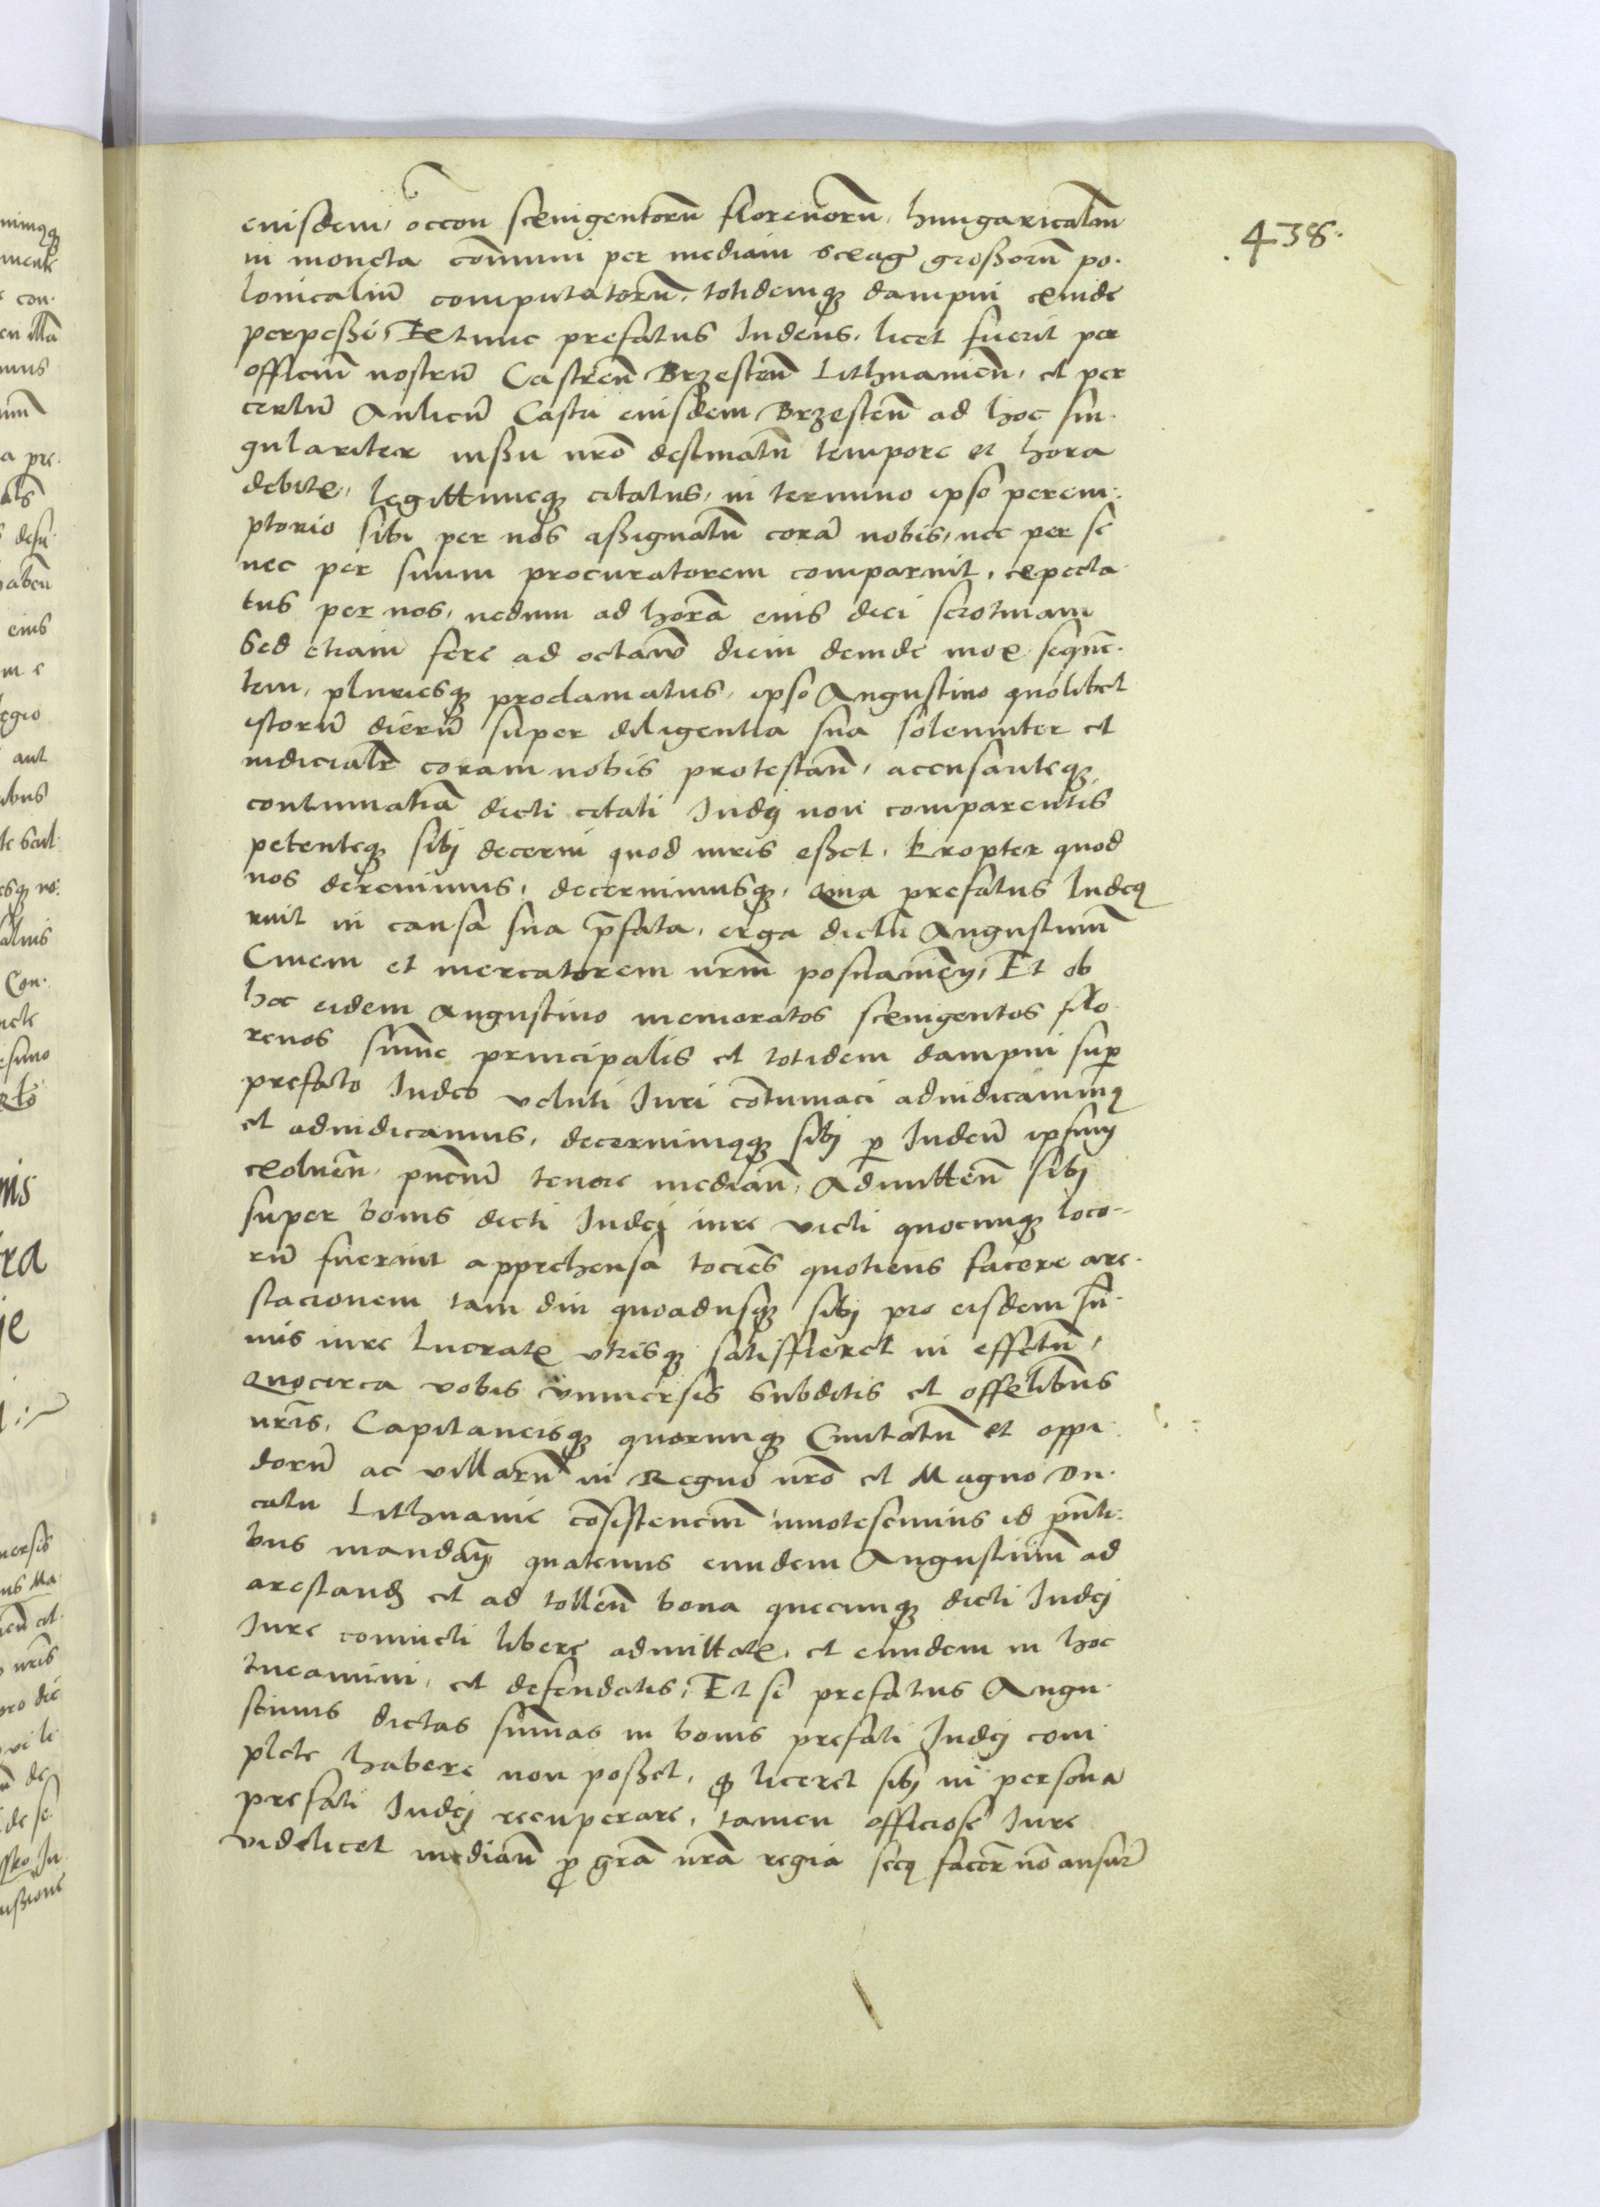 438.
eiusdem, occon sexingentorum florenorum, hungaricalium
in moneta communi per mediam sexag grossorum po-
lonicalium computatorum, totidemque dampni exinde
perpessi, Et tunc prefatus Iudeus, licet fuerit per
officium nostrum Castren Brzesten Lithuanien, et per
certum Aulicum Castri eiusdem Brzesten ad hoc sin-
gulariter iussu nro destinatum tempore et hora
debite, legittimeque citatus, in termino ipso perem-
ptorio sibi per nos assignatum coram nobis, nec per se
nec per suum procuratorem comparuit, expecta-
tus per nos, nedum ad horam eius diei serotinam
Sed etiam fere ad octavum diem deinde mox sequen-
tem, pluriesque proclamatus, ipso Augustino quolibet
istorum dierum super diligentia sua solenniter et
iudicialr coram nobis protestan, accusanteque
contumatiam dicti citati Iudei non comparentis
petenteque sibi decerni quod iuris esset, Propter quod
nos decreuimus, decernimusque, Quia prefatus Iudeus
ruit in causa sua prefata, erga dictum Augustinum
Ciuem et mercatorem nrm posnanien, Et ob
hoc eidem Augustino memoratos sexingentos flo-
renos summe principalis et totidem dampni super
prefato Iudeo veluti Iuri contumaci adiudicauimus
et adiudicamus, decernimusque sibi per Iudeum ipsum
exoluen, pntium tenore median, Admitten sibi
super bonis dicti Iudei iure victi quocunque loco-
rum fuerint apprehensa tociens quotiens facere are-
stacionem tam diu quoadusque sibi pro eisdem sum-
mis iure lucrate vtrisque satisfieret in effectum,
Quocirca vobis vniuersis subditis et offelibus
nris, Capitaneisque quorumque Ciuitatum et oppi-
dorum ac villarum in Regno nro et Magno Du-
catu Lithuanie consistencium innotescimus id pnti-
bus mandam quatenus eundem Augustinum ad
arestand et ad tollen bona quecunque dicti Iudei
Iure conuicti libere admittate, et eundem in hoc
tueamini, et defendatis, Et si prefatus Augu-
stinus dictas summas in bonis prefati Iudei com-
plete habere non posset, quod liceret sibi in persona
prefati Iudei recuperare, tamen officiose Iure
videlicet median pro gra nra regia secus facere non ansuri